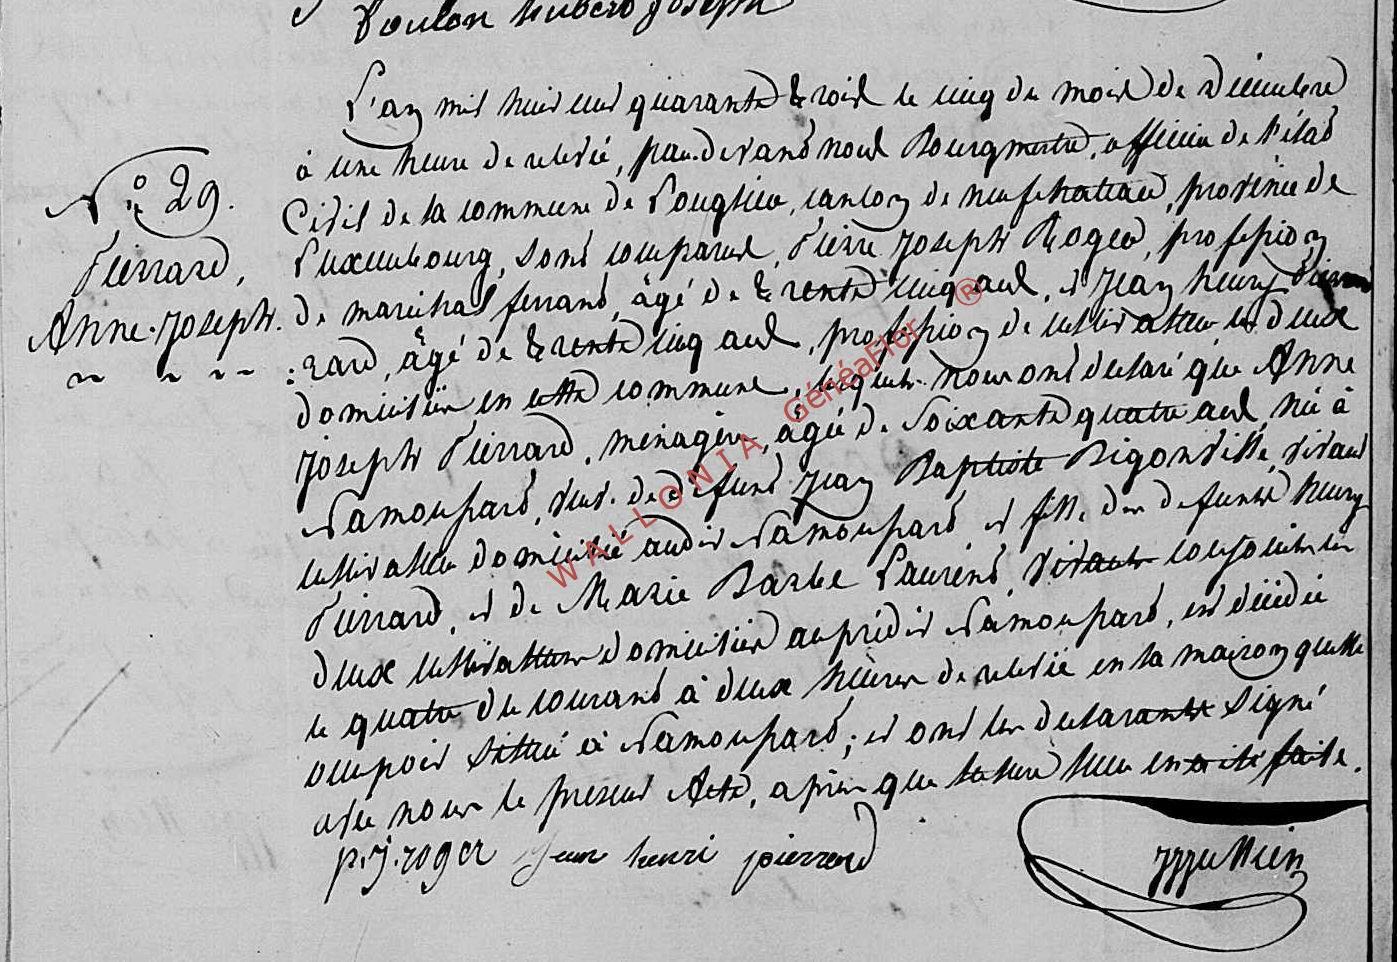 Poulon hubert joseph
L'an mil huit cent quarante trois le cinq du mois de Décembre
à une heure de relevée, par-devant nous Bourgmestre, officier de l'état
Civil de la commune de Longlier, canton de neufchateau, province de
N.° 29.
Luxembourg, sont comparus, Pierre Joseph Roger, profession
Pierrard,
de maréchal ferrant, âgé de trente cinq ans, et Jean henry Pier
Anne-Joseph.
:rard, âgé de trente cinq ans, profession de cultivateur les deux
domiciliés en cette commune, lesquels nous ont déclaré que Anne
Joseph Pierrard, ménagère, âgée de soixante quatre ans, née à
Namoussart, veuv. de défunt Jean Baptiste Bigonville, vivant
cultivateur domicilié audit Namoussart et fille des défunts henry
Pierrard, et de Marie Barbe Laurent vivants conjoints les
deux cultivateurs domiciliés au prédit Namoussart, est décédée
le quatre du courant à deux heures de relevée en la maison quelle
occupoit située à Namoussart; et ont les déclarants signé
avec nous le présent Acte, après que lecture leur en a été faite.
p. j. roger jean henri pierrard
WALLONIA GénéaFlor ®